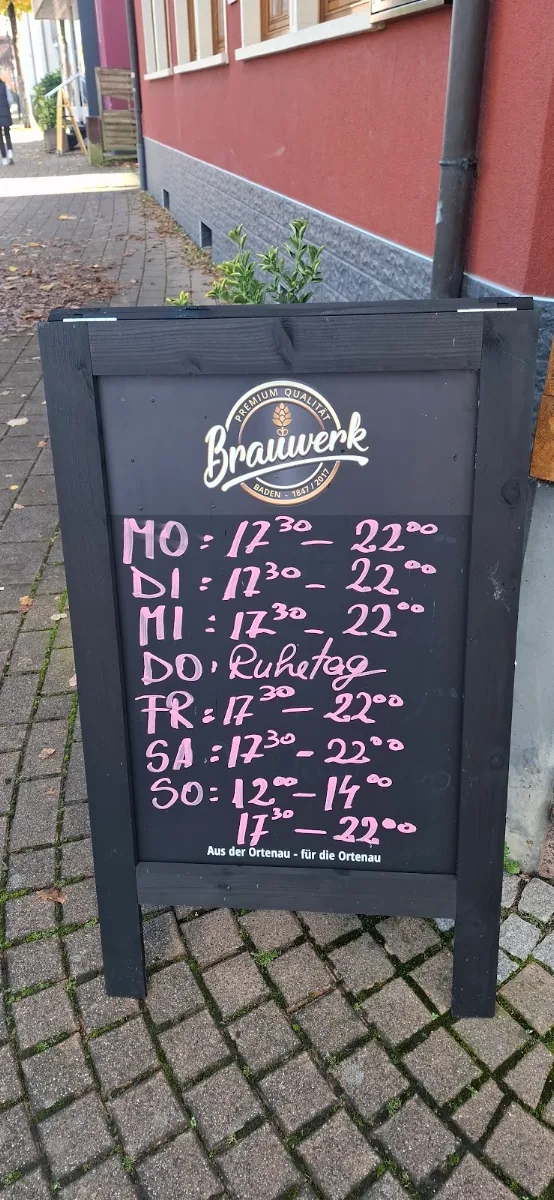 PREMIUM QUALITÄT
Brauwerk
BADEN - 1847 | 2017
MO: 17³⁰ – 22⁰⁰
DI: 17³⁰ – 22⁰⁰
MI: 17³⁰ – 22⁰⁰
DO: Ruhetag
FR: 17³⁰ – 22⁰⁰
SA: 17³⁰ – 22⁰⁰
SO: 12⁰⁰ – 14⁰⁰
17³⁰ – 22⁰⁰
Aus der Ortenau - für die Ortenau